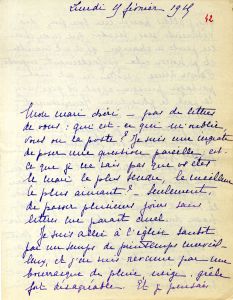 Lundi 5 février 1945
42
Mon mari chéri — pas de lettres
de vous : qui est-ce qui m'oublie
vous ou la poste ? Je suis une ingrate
de poser une question pareille est-
ce que je ne sais pas que vous êtes
le mari le plus tendre, le meilleur
le plus aimant ? — Seulement
de passer plusieurs jours sans
lettres me paraît cruel.
Je suis allée à l'église
par un temps de printemps merveil-
leux, et j'en suis revenue par une
bourrasque de pluie, neige, grêle
fort désagréable. Et je pensais